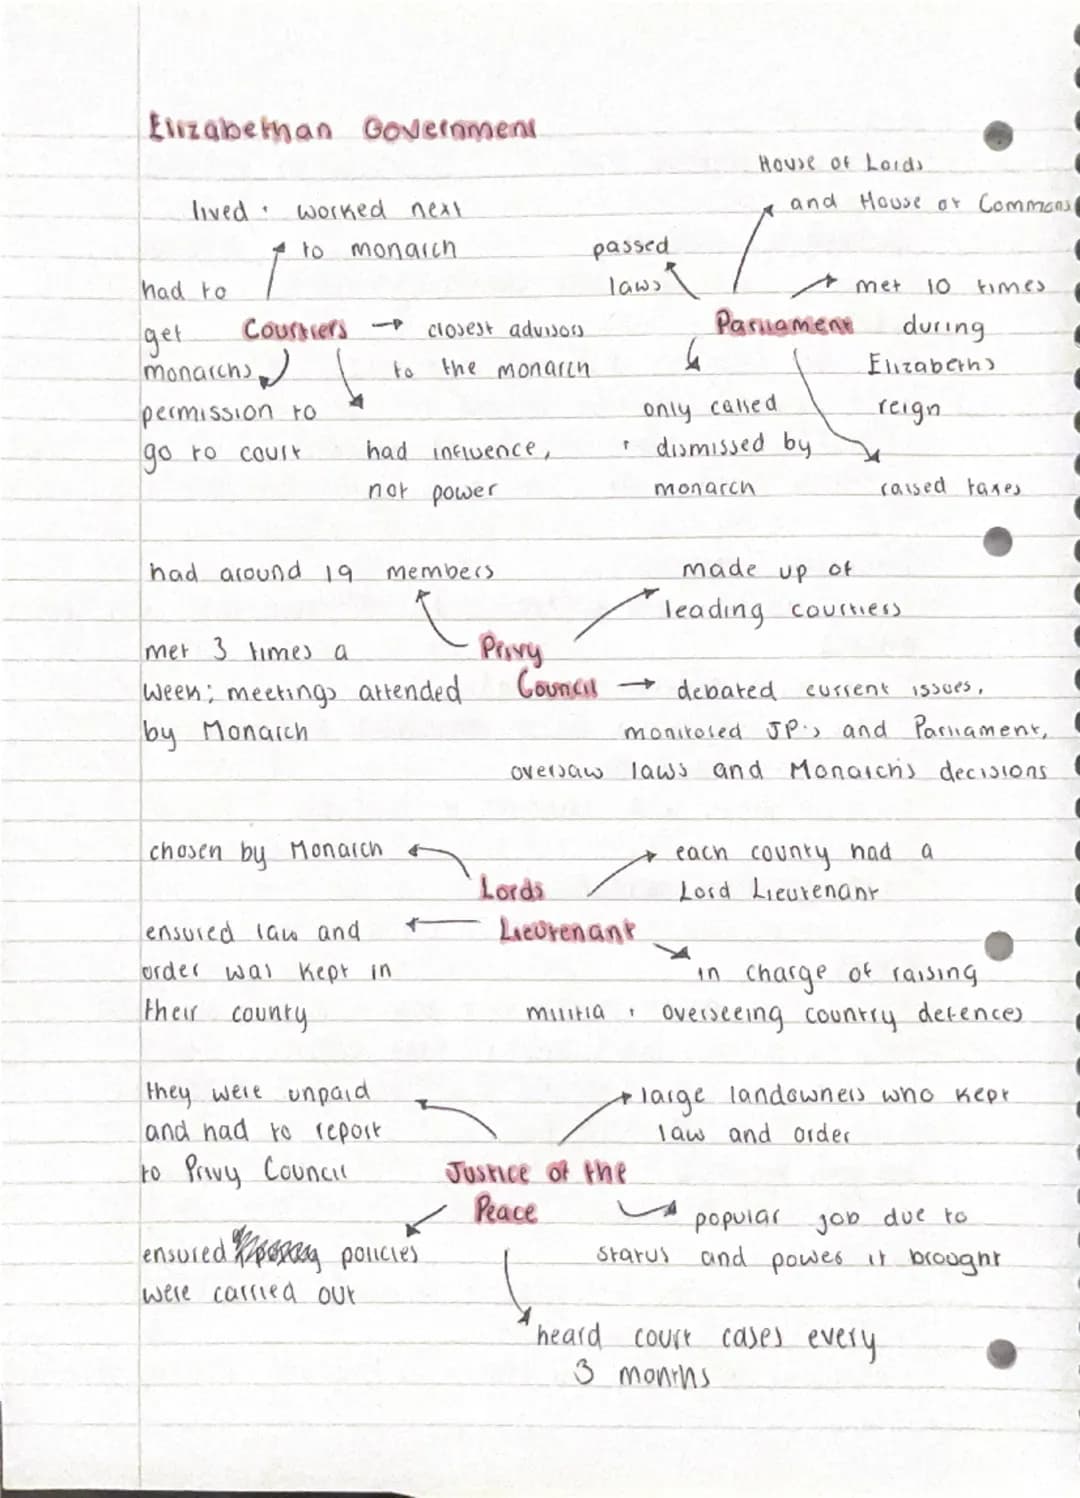 Elizabethan Government
lived + worked next
to monarch
had to
get
monarchs
permission to
go to court
Courtiers
closest advisors
to the monarch
had influence,
not power
House of Lords
and House of Commons
passed
laws
met 10 times
during
Elizabeths
reign
Parliament
only called
+ dismissed by
monarch
raised taxes
had around 19 members
made up of
leading courtiers
met 3 times a
week; meetings attended
by Monarch
Privy
Council
debated current issues,
monitored JP's and Parliament,
oversaw laws and Monarch's decisions
chosen by Monarch
each county had a
Lord Lieutenant
Lords
Lieutenant
ensured law and
order was kept in
their county
in charge of raising
militia + overseeing country defences
they were unpaid
and had to report
to Privy Council
large landowners who kept
law and order
Justice of the
Peace
ensured policies
were carried out
popular job due to
status and power it brought
heard court cases every
3 months